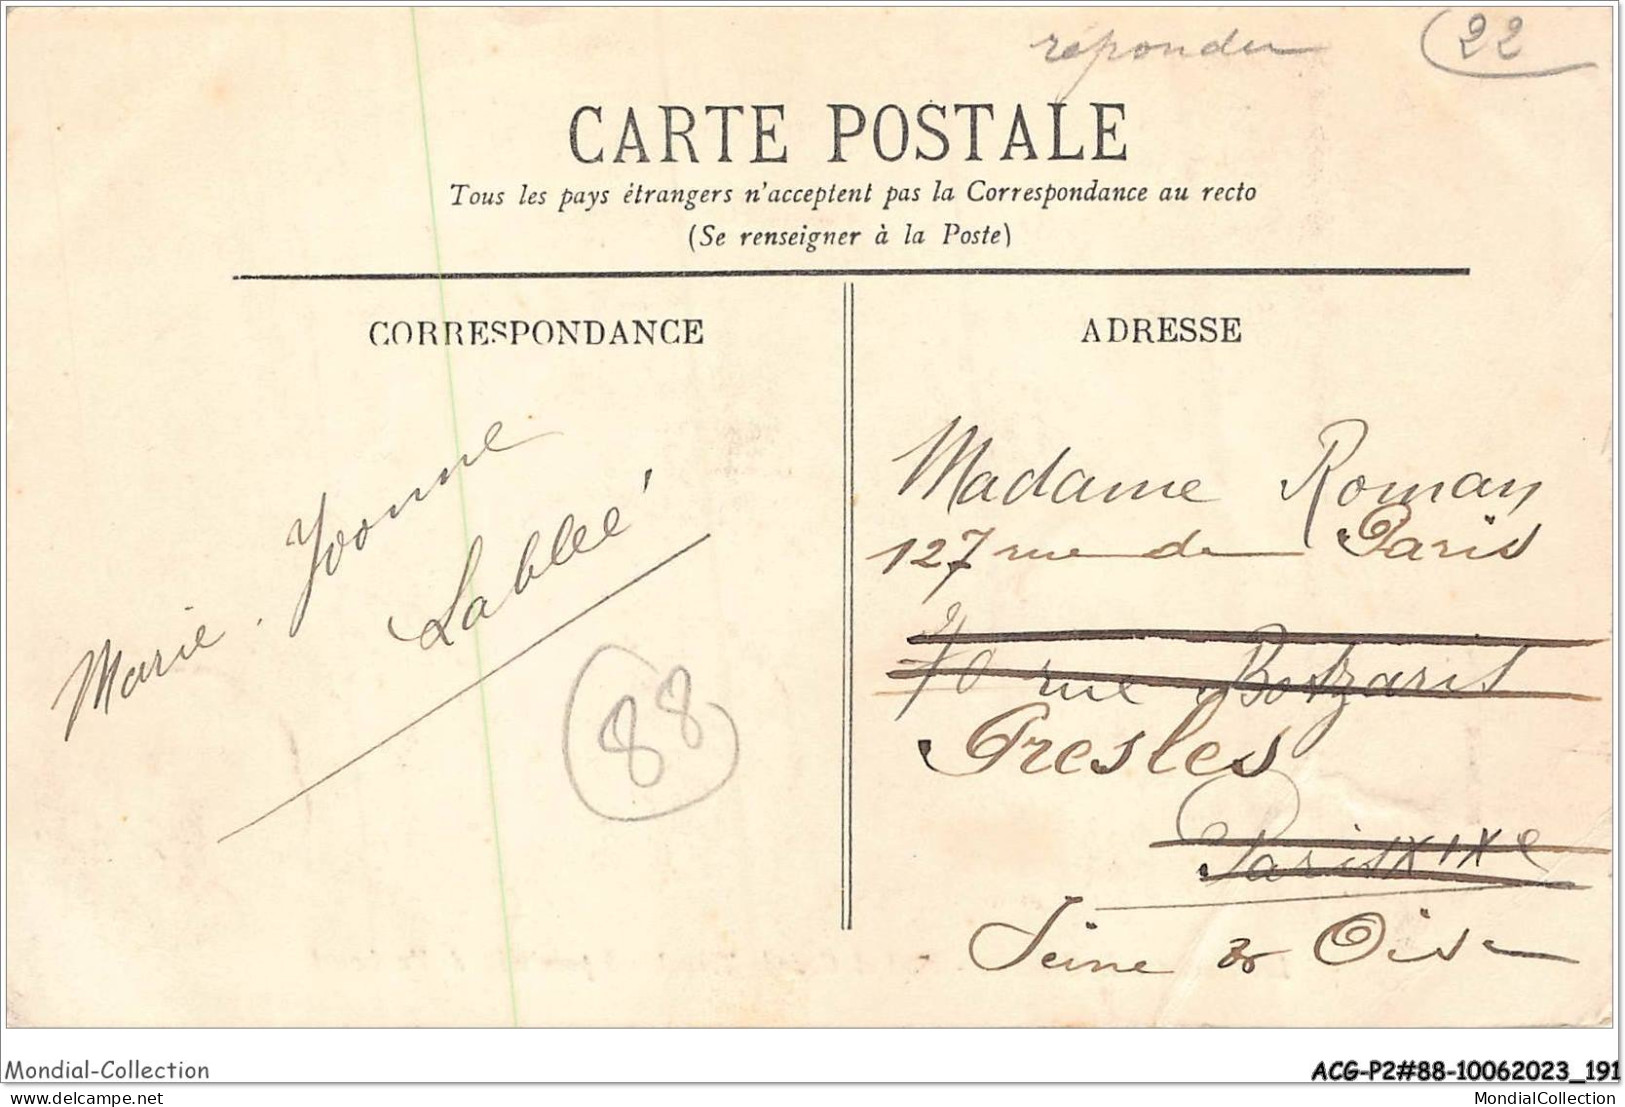 répondu
22
CARTE POSTALE
Tous les pays étrangers n'acceptent pas la Correspondance au recto
(Se renseigner à la Poste)
CORRESPONDANCE
Marie. Yvonne
Lablée
88
ADRESSE
Madame Roman
127 rue de Paris
70 rue Botzaris
Presles
Paris XIXe
Seine & Oise
Mondial-Collection
ACG-P2#88-10062023_191
delcampe.net
MondialCollection